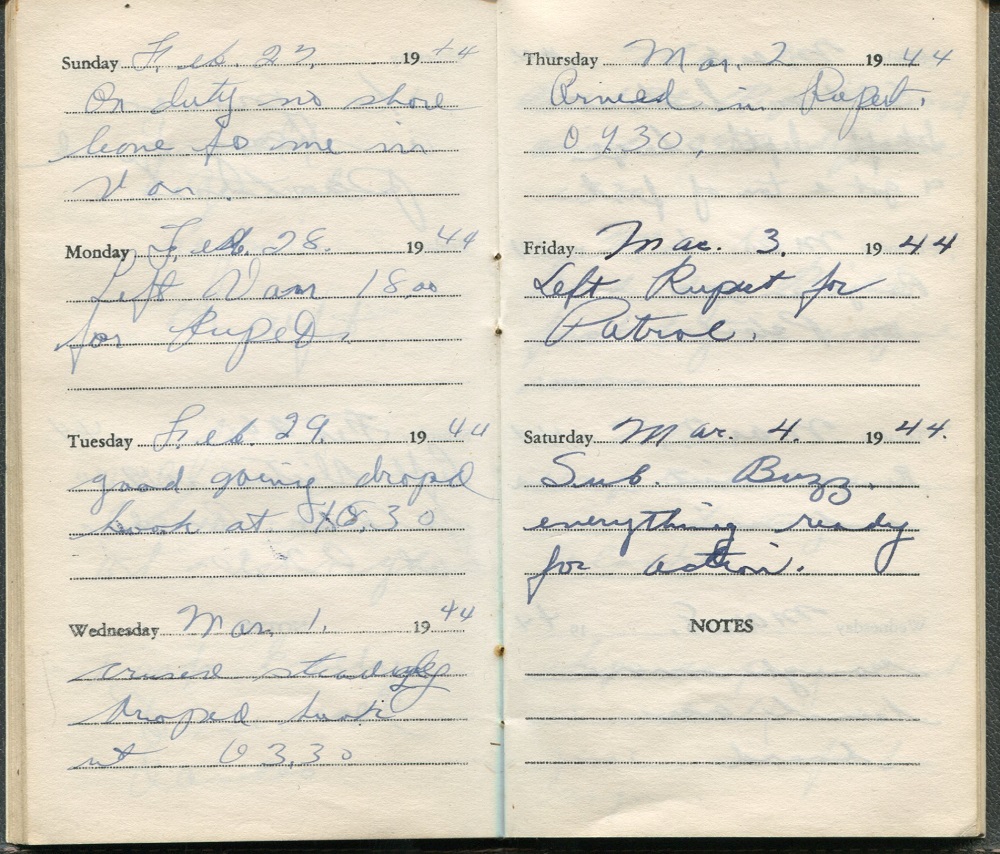 Sunday Feb. 27. 19 44
On duty no shore
leave to me in
Van.
Monday Feb. 28. 19 44
Left Van 18.00
for Ruped.
Tuesday Feb. 29. 19 44
good going droped
hook at 18.30
Wednesday Mar. 1. 19 44
crused steadyly
droped hook
at 03.30
Thursday Mar. 2 19 44
Arrived in Rupert.
0930.
Friday Mar. 3. 19 44
Left Rupert for
Patrol.
Saturday Mar. 4. 19 44.
Sub. Buzz.
everything ready
for action.
NOTES